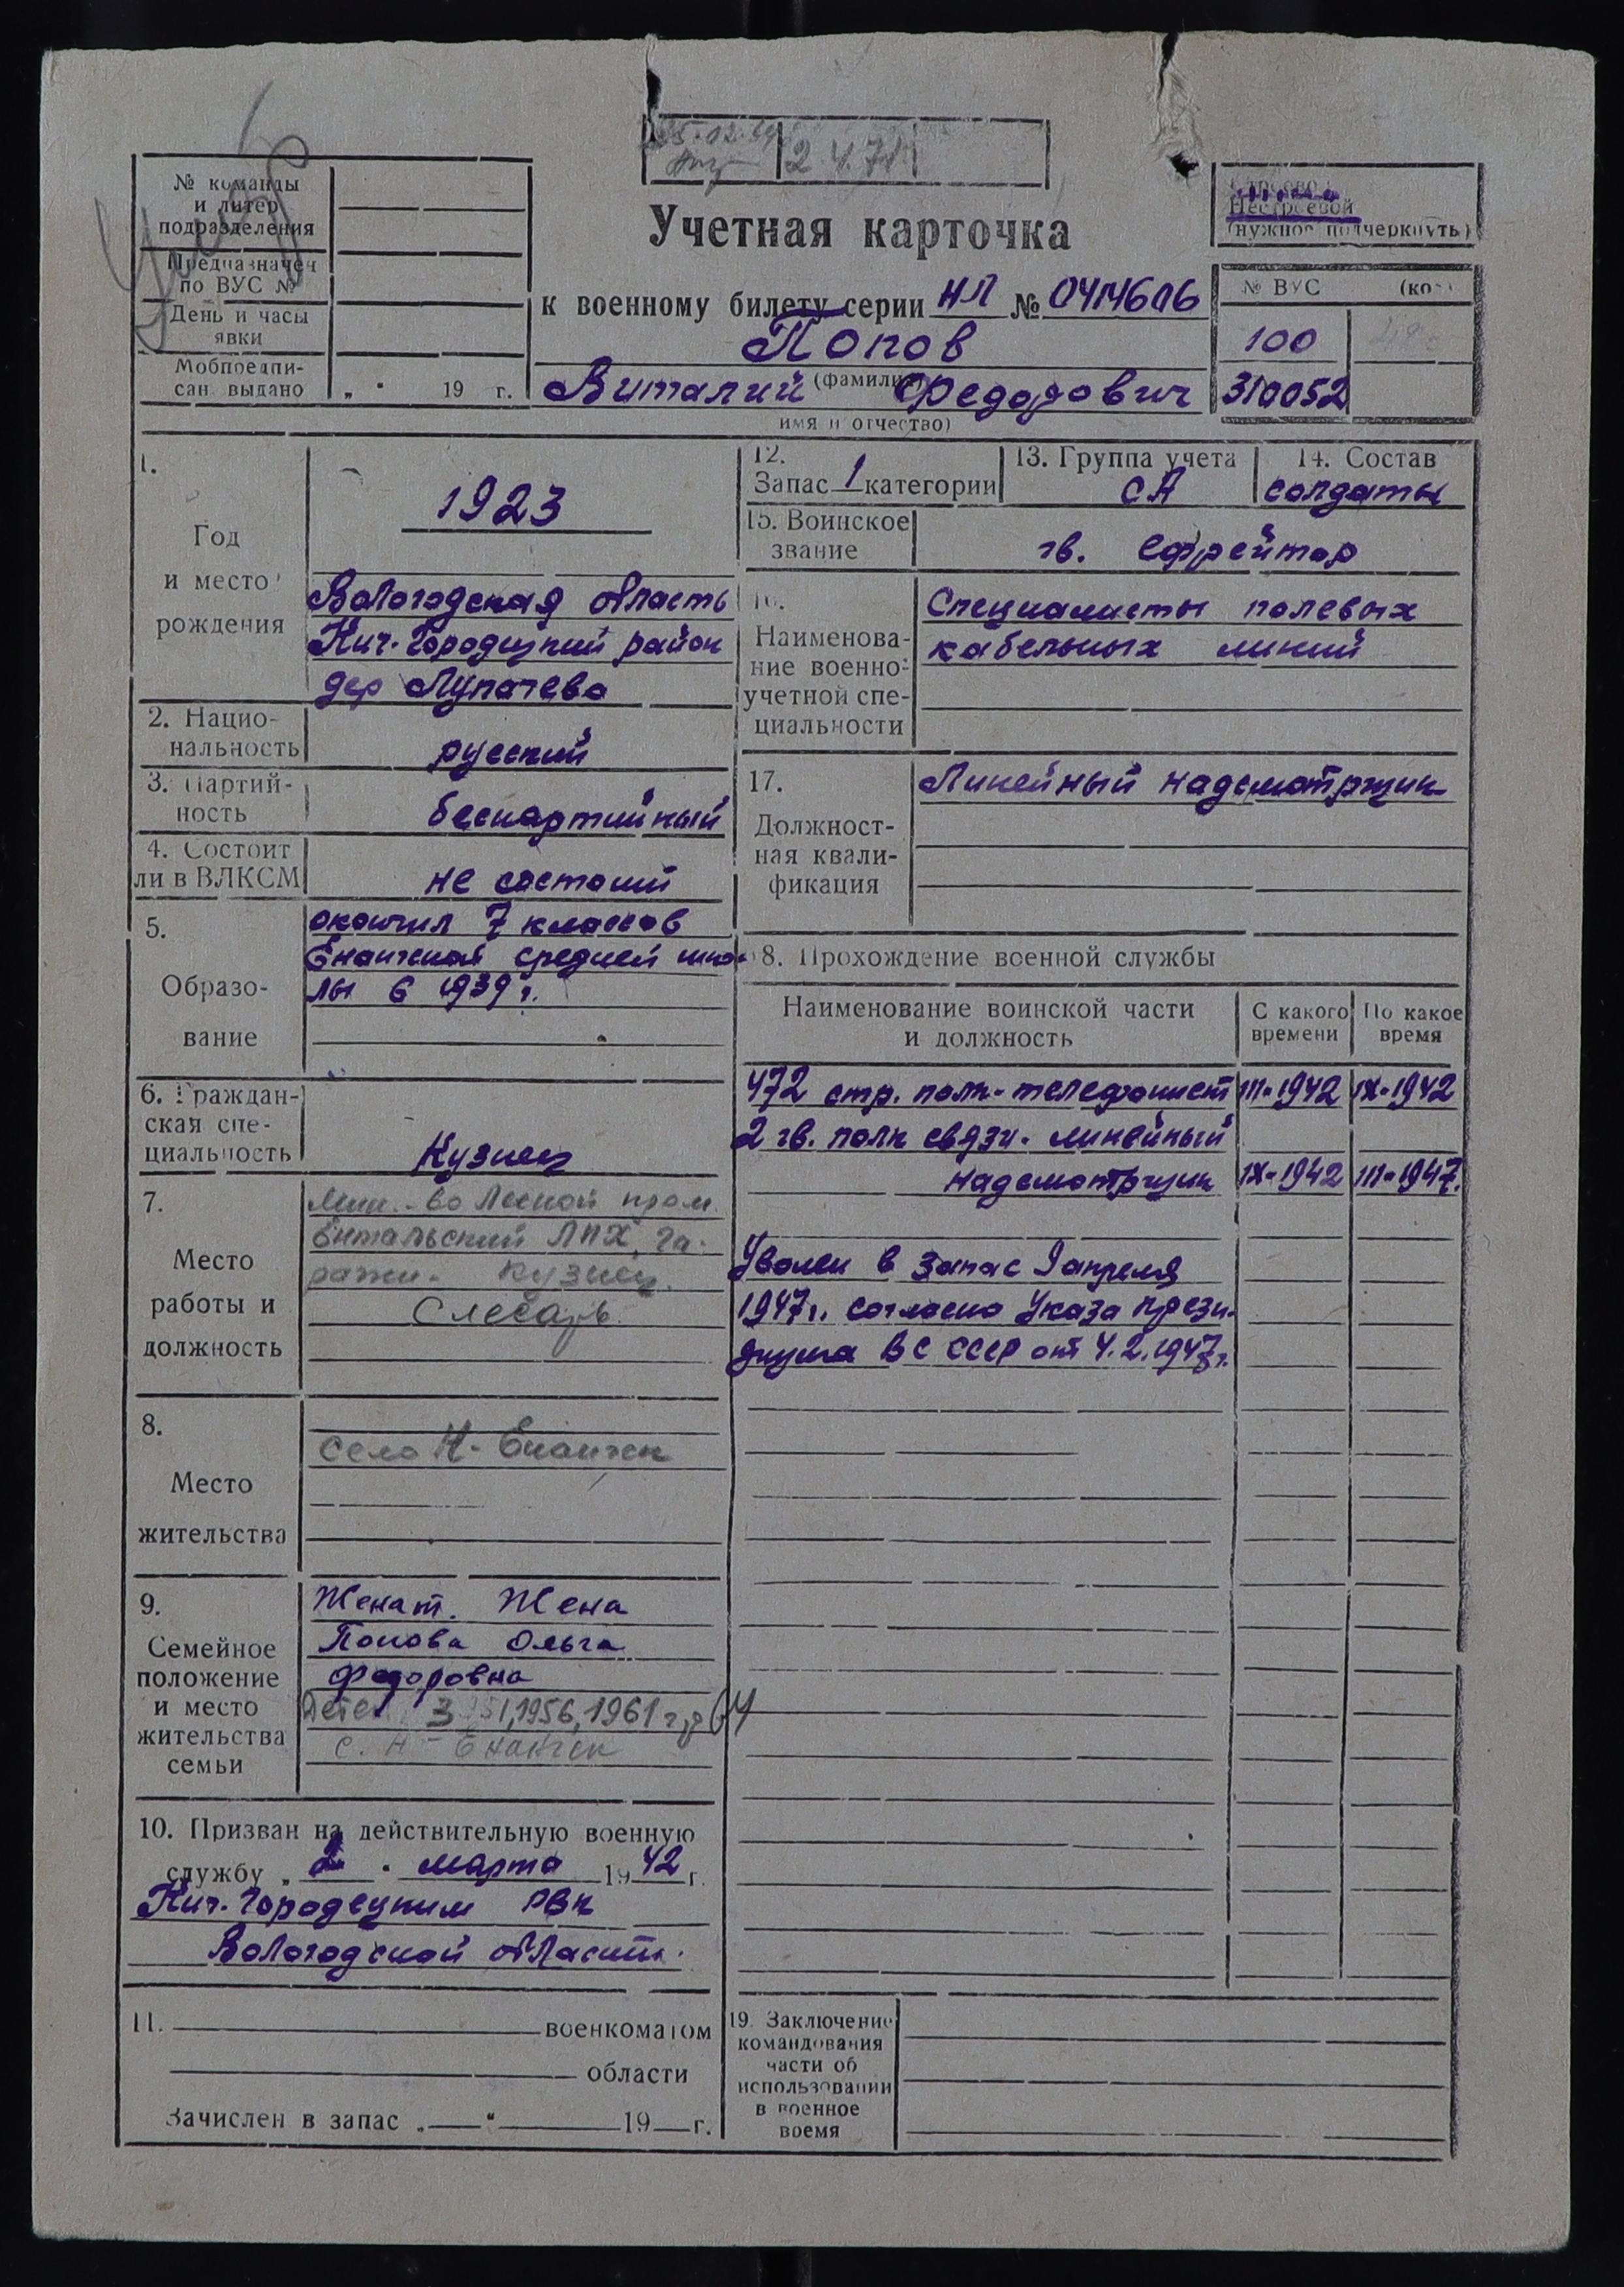 2.4.71
№ команды
и литер
подразделения
Предназначен
по ВУС №
День и часы
явки
Мобпредпи-
сан. выдано „ " 19 г.
Учетная карточка
Нестроевой
(нужное подчеркнуть)
к военному билету серии НЛ № 0414606
№ ВУС (код)
Попов
100
(фамилия)
Виталий Федорович
310052
имя и отчество)
1.
Год
и место
рождения
1923
Вологодская область
Кич.-Городецкий район
дер Лупачево
2. Нацио-
нальность
русский
3. Партий-
ность
беспартийный
4. Состоит
ли в ВЛКСМ
не состоит
5.
Образо-
вание
окончил 7 классов
Енангской средней шко-
лы в 1939 г.
6. Граждан-
ская спе-
циальность
Кузнец
7.
Место
работы и
должность
Мин.-во Лесной пром.
Ентальский ЛПХ, га-
ражн. кузнец.
Слесарь
8.
Место
жительства
село Н-Енангск
9.
Семейное
положение
и место
жительства
семьи
Женат. Жена
Попова Ольга
Федоровна
Дете 3 51, 1956, 1961 г, 64
с. Н-Енангск
10. Призван на действительную военную
службу „ 2 " марта 1942 г.
Кич.-Городецким РВК
Вологодской области.
11. военкоматом
области
Зачислен в запас „ " 19 г.
12.
Запас 1 категории
13. Группа учета
СА
14. Состав
солдаты
15. Воинское
звание
гв. ефрейтор
16.
Наименова-
ние военно-
учетной спе-
циальности
Специалисты полевых
кабельных линий
17.
Должност-
ная квали-
фикация
Линейный надсмотрщик
18. Прохождение военной службы
Наименование воинской части
и должность
С какого
времени
По какое
время
472 стр. полк-телефонист III-1942 IX-1942
2 гв. полк связи. линейный
надсмотрщик IX-1942 III-1947.
Уволен в запас 9 апреля
1947 г. согласно Указа Прези-
диума ВС СССР от 4.2.1947 г.
19. Заключение
командования
части об
использовании
в военное
время